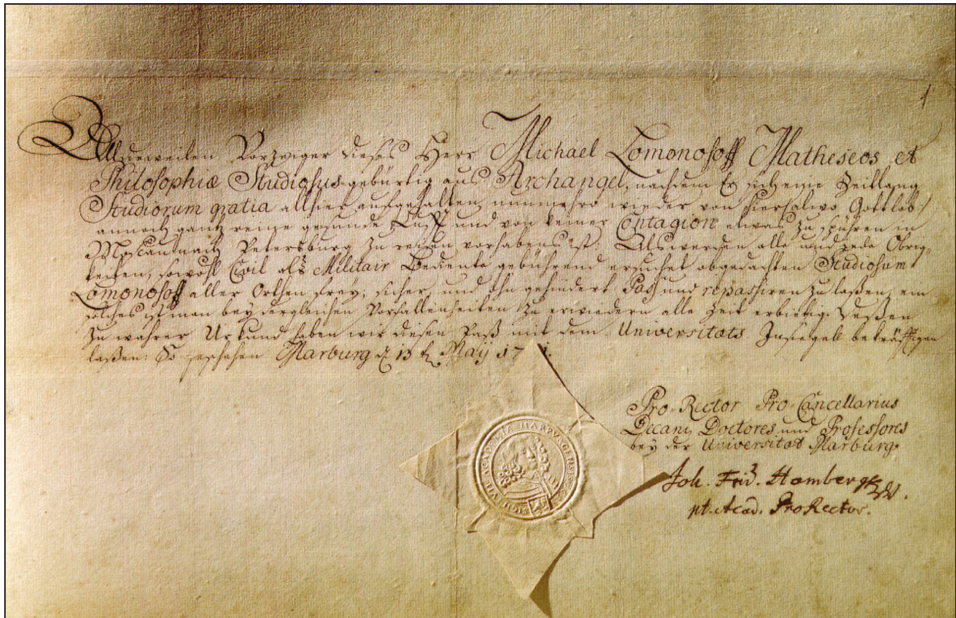 1
Alldieweilen Vorzeiger dieses Herr Michael Lomonosoff Matheseos et
Philosophiæ Studiosus gebürtig aus Archangel, nachdem Er sich eine Zeitlang
Studiorum gratia allhier aufgehalten, nunmehro wieder von hier alwo Gottlob!
annoch gantz reine gesunde Lufft und von keiner Contagion etwas zu spühren in
Moscau nach Petersburg zu reisen vorhabens ist; Als werden alle und jede Obrig-
keiten, sowohl Civil als Militair Bediente gebührend ersuchet obgedachten Studiosum
Lomonosoff aller Orthen frey, sicher, und ohngehindert Pass und repassiren zu lassen, ein
solches ist man bey dergleichen Vorfallenheiten zu erwiedern alle Zeit erbietig. Dessen
zu wahrer Urkund haben wir diesen Paß mit dem Universitäts Insiegel bekräfftigen
lassen: So geschehen Marburg 13 May 17
Pro-Rector Pro-Cancellarius
Decani Doctores und Professores
bey der Universität Marburg
Joh. Frid. Homberg
pt. Acad. ProRector.